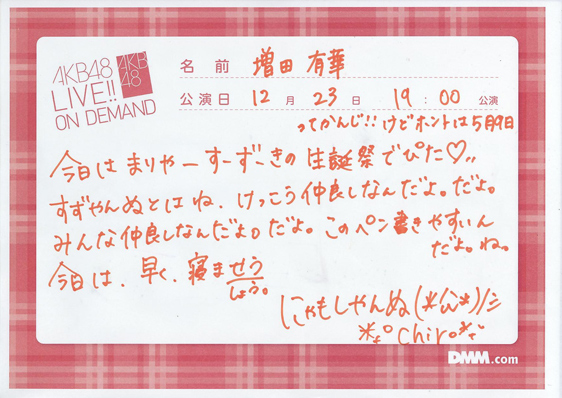 AKB48
LIVE!!
ON DEMAND
AKB
48
名前 増田 有華
公演日 12月 23日 19:00 公演
ってかんじ!! けどホントは5月9日
今日は まりやーすーずーきの 生誕祭でぴた♡!!
すずやんぬとはね、けっこう仲良しなんだよ。だよ。
みんな仲良しなんだよ。だよ。このペン書きやすいん
だよ。ね。
今日は、早く、寝ませう
しょう。
にゃもしゃんぬ
chiro
DMM.com